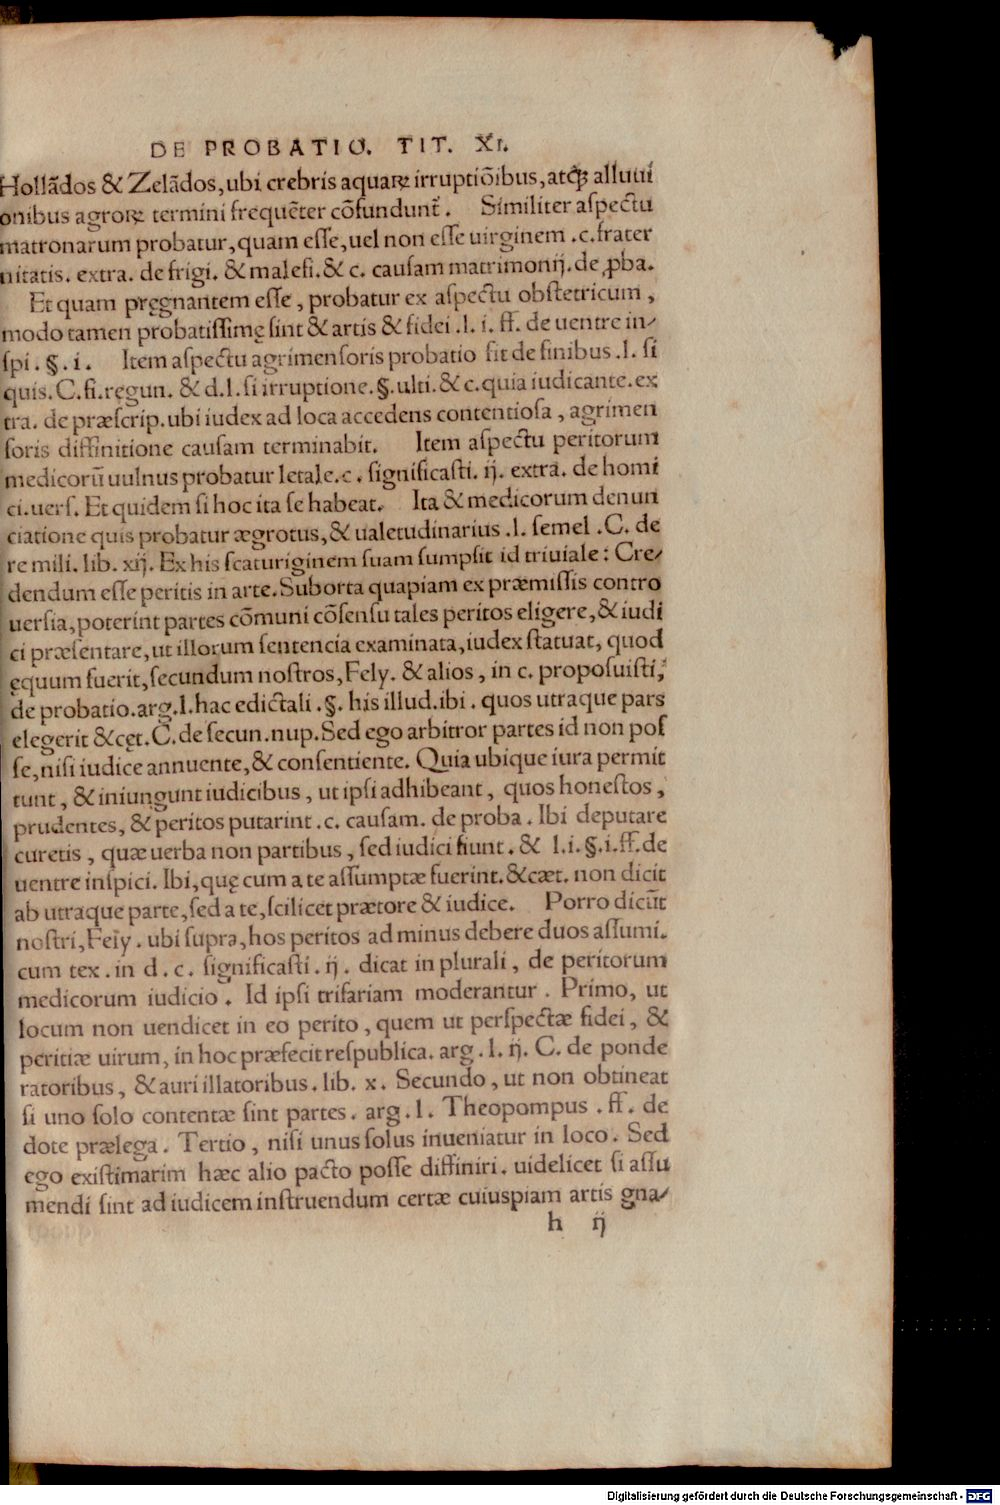 DE PROBATIO. TIT. XI.
Hollãdos & Zelãdos, ubi crebris aquaꝝ irruptiõibus, atqꝫ alluui
onibus agroꝝ termini frequẽter cõfundunt̃. Similiter aspectu
matronarum probatur, quam esse, uel non esse uirginem .c. frater
nitatis. extra. de frigi. & malefi. & c. causam matrimonij. de ꝓba.
Et quam pręgnantem esse, probatur ex aspectu obstetricum,
modo tamen probatissimę sint & artis & fidei .l. i. ff. de uentre in⸗
spi. §. i. Item aspectu agrimensoris probatio fit de finibus .l. si
quis. C. fi. regun. & d. l. si irruptione. §. ulti. & c. quia iudicante. ex
tra. de præscrip. ubi iudex ad loca accedens contentiosa, agrimen
soris diffinitione causam terminabit. Item aspectu peritorum
medicorũ uulnus probatur letale. c. significasti. ij. extra. de homi
ci. uers. Et quidem si hoc ita se habeat. Ita & medicorum denun
ciatione quis probatur ægrotus, & ualetudinarius .l. semel .C. de
re mili. lib. xij. Ex his scaturiginem suam sumpsit id triuiale: Cre⸗
dendum esse peritis in arte. Suborta quapiam ex præmissis contro
uersia, poterint partes cõmuni cõsensu tales peritos eligere, & iudi
ci præsentare, ut illorum sentencia examinata, iudex statuat, quod
ęquum fuerit, secundum nostros, Fely. & alios, in c. proposuisti,
de probatio. arg. l. hac edictali .§. his illud. ibi. quos utraque pars
elegerit & cęt. C. de secun. nup. Sed ego arbitror partes id non pos
se, nisi iudice annuente, & consentiente. Quia ubique iura permit
tunt, & iniungunt iudicibus, ut ipsi adhibeant, quos honestos,
prudentes, & peritos putarint .c. causam. de proba. Ibi deputare
curetis, quæ uerba non partibus, sed iudici fiunt. & l. i. §. i. ff. de
uentre inspici. Ibi, quę cum a te assumptæ fuerint. & cæt. non dicit
ab utraque parte, sed a te, scilicet prætore & iudice. Porro dicũt
nostri, Fely. ubi supra, hos peritos ad minus debere duos assumi.
cum tex. in d. c. significasti. ij. dicat in plurali, de peritorum
medicorum iudicio. Id ipsi trifariam moderantur. Primo, ut
locum non uendicet in eo perito, quem ut perspectæ fidei, &
peritiæ uirum, in hoc præfecit respublica. arg. l. ij. C. de ponde
ratoribus, & auri illatoribus. lib. x. Secundo, ut non obtineat
si uno solo contentæ sint partes. arg. l. Theopompus. ff. de
dote prælega. Tertio, nisi unus solus inueniatur in loco. Sed
ego existimarim hæc alio pacto posse diffiniri. uidelicet si assu
mendi sint ad iudicem instruendum certæ cuiuspiam artis gna⸗
h ij
Digitalisierung gefördert durch die Deutsche Forschungsgemeinschaft - DFG